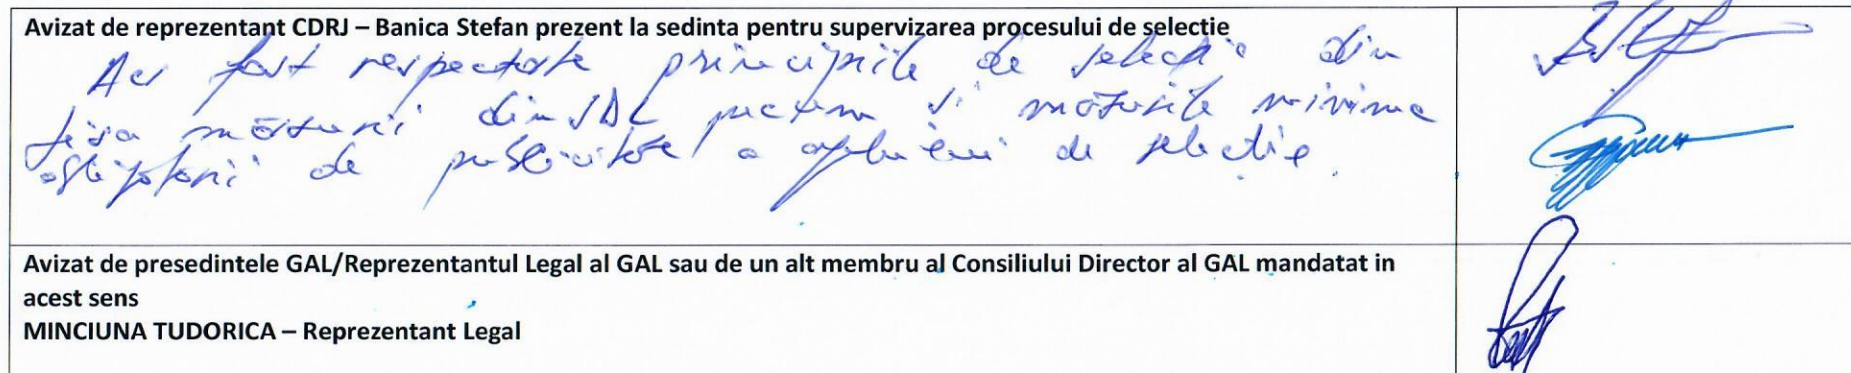 Avizat de reprezentant CDRJ – Banica Stefan prezent la sedinta pentru supervizarea procesului de selectie
Au fost respectate principiile de selectie din
fisa măsurii din SDL precum si măsurile minime
obligatorii de publicitate a apelului de selectie.
Avizat de presedintele GAL/Reprezentantul Legal al GAL sau de un alt membru al Consiliului Director al GAL mandatat in
acest sens
MINCIUNA TUDORICA – Reprezentant Legal